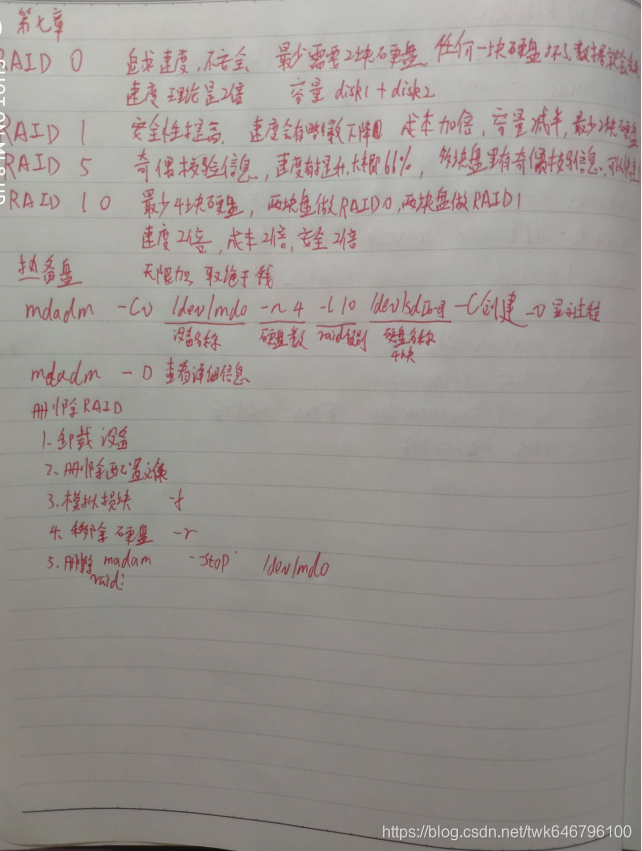 第七章
RAID 0 追求速度,不安全 最少需要2块硬盘 任何一块硬盘坏了,数据就会
速度理论是2倍 容量 disk1 + disk2
RAID 1 安全性提高 速度会有略微下降 成本加倍,容量减半,最少2块硬盘
RAID 5 奇偶校验信息,速度有提升,大概66%, 每块盘里有奇偶校验信息,
RAID 10 最少4块硬盘, 两块盘做RAID0,两块盘做RAID1
速度2倍,成本2倍,安全2倍
热备盘 无限加,取绝于钱
mdadm -Cv /dev/md0 -n 4 -l 10 /dev/sd[b-e] -C创建 -v 显示过程
设备名称 硬盘数 raid级别 硬盘名称
4块
mdadm -D 查看详细信息
删除RAID
1.卸载设备
2.删除配置文件
3.模拟损坏 -f
4.移除硬盘 -r
5.删除 madam --stop /dev/md0
raid:
https://blog.csdn.net/twk646796100